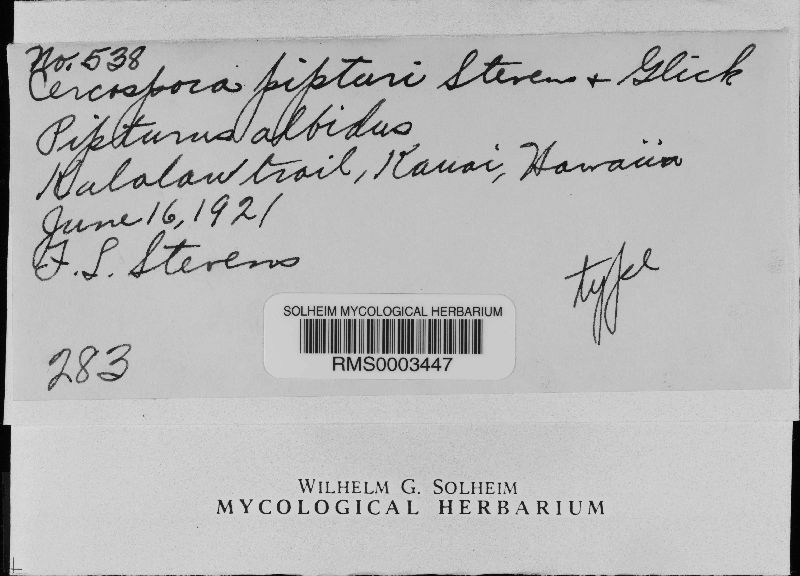 No. 538
Cercospora pipturi Stevens + Glick
Pipturus albidus
Kalalau trail, Kauai, Hawaiia
June 16, 1921
F. L. Stevens
type
283
SOLHEIM MYCOLOGICAL HERBARIUM
RMS0003447
WILHELM G. SOLHEIM
MYCOLOGICAL HERBARIUM